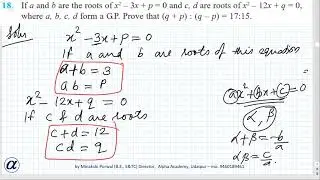 18. If a and b are the roots of x² – 3x + p = 0 and c, d are roots of x² – 12x + q = 0,
where a, b, c, d form a G.P. Prove that (q + p) : (q – p) = 17:15.
Soln
x² - 3x + p = 0
If a and b are roots of this equation
a + b = 3
ab = p
x² - 12x + q = 0
If c & d are roots
c + d = 12
cd = q
ax² + bx + c = 0
α, β
α + β = -b/a
αβ = c/a
by Minakshi Porwal (B.E., SB/TC) Director, Alpha Academy, Udaipur – mo. 9460189461
α